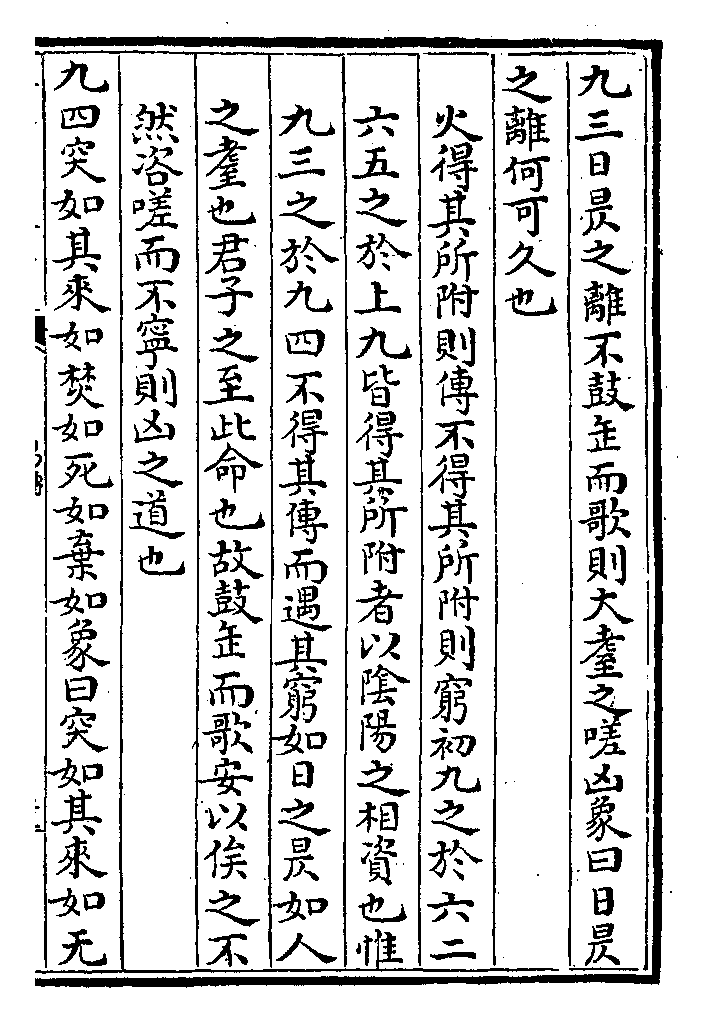 九三日昃之離不鼓缶而歌則大耋之嗟凶象曰日昃
之離何可久也
火得其所附則傳不得其所附則窮初九之於六二
六五之於上九皆得其所附者以隂陽之相資也惟
九三之於九四不得其傳而遇其窮如日之昃如人
之耋也君子之至此命也故鼓缶而歌安以俟之不
然咨嗟而不寧則凶之道也
九四突如其來如焚如死如棄如象曰突如其來如无